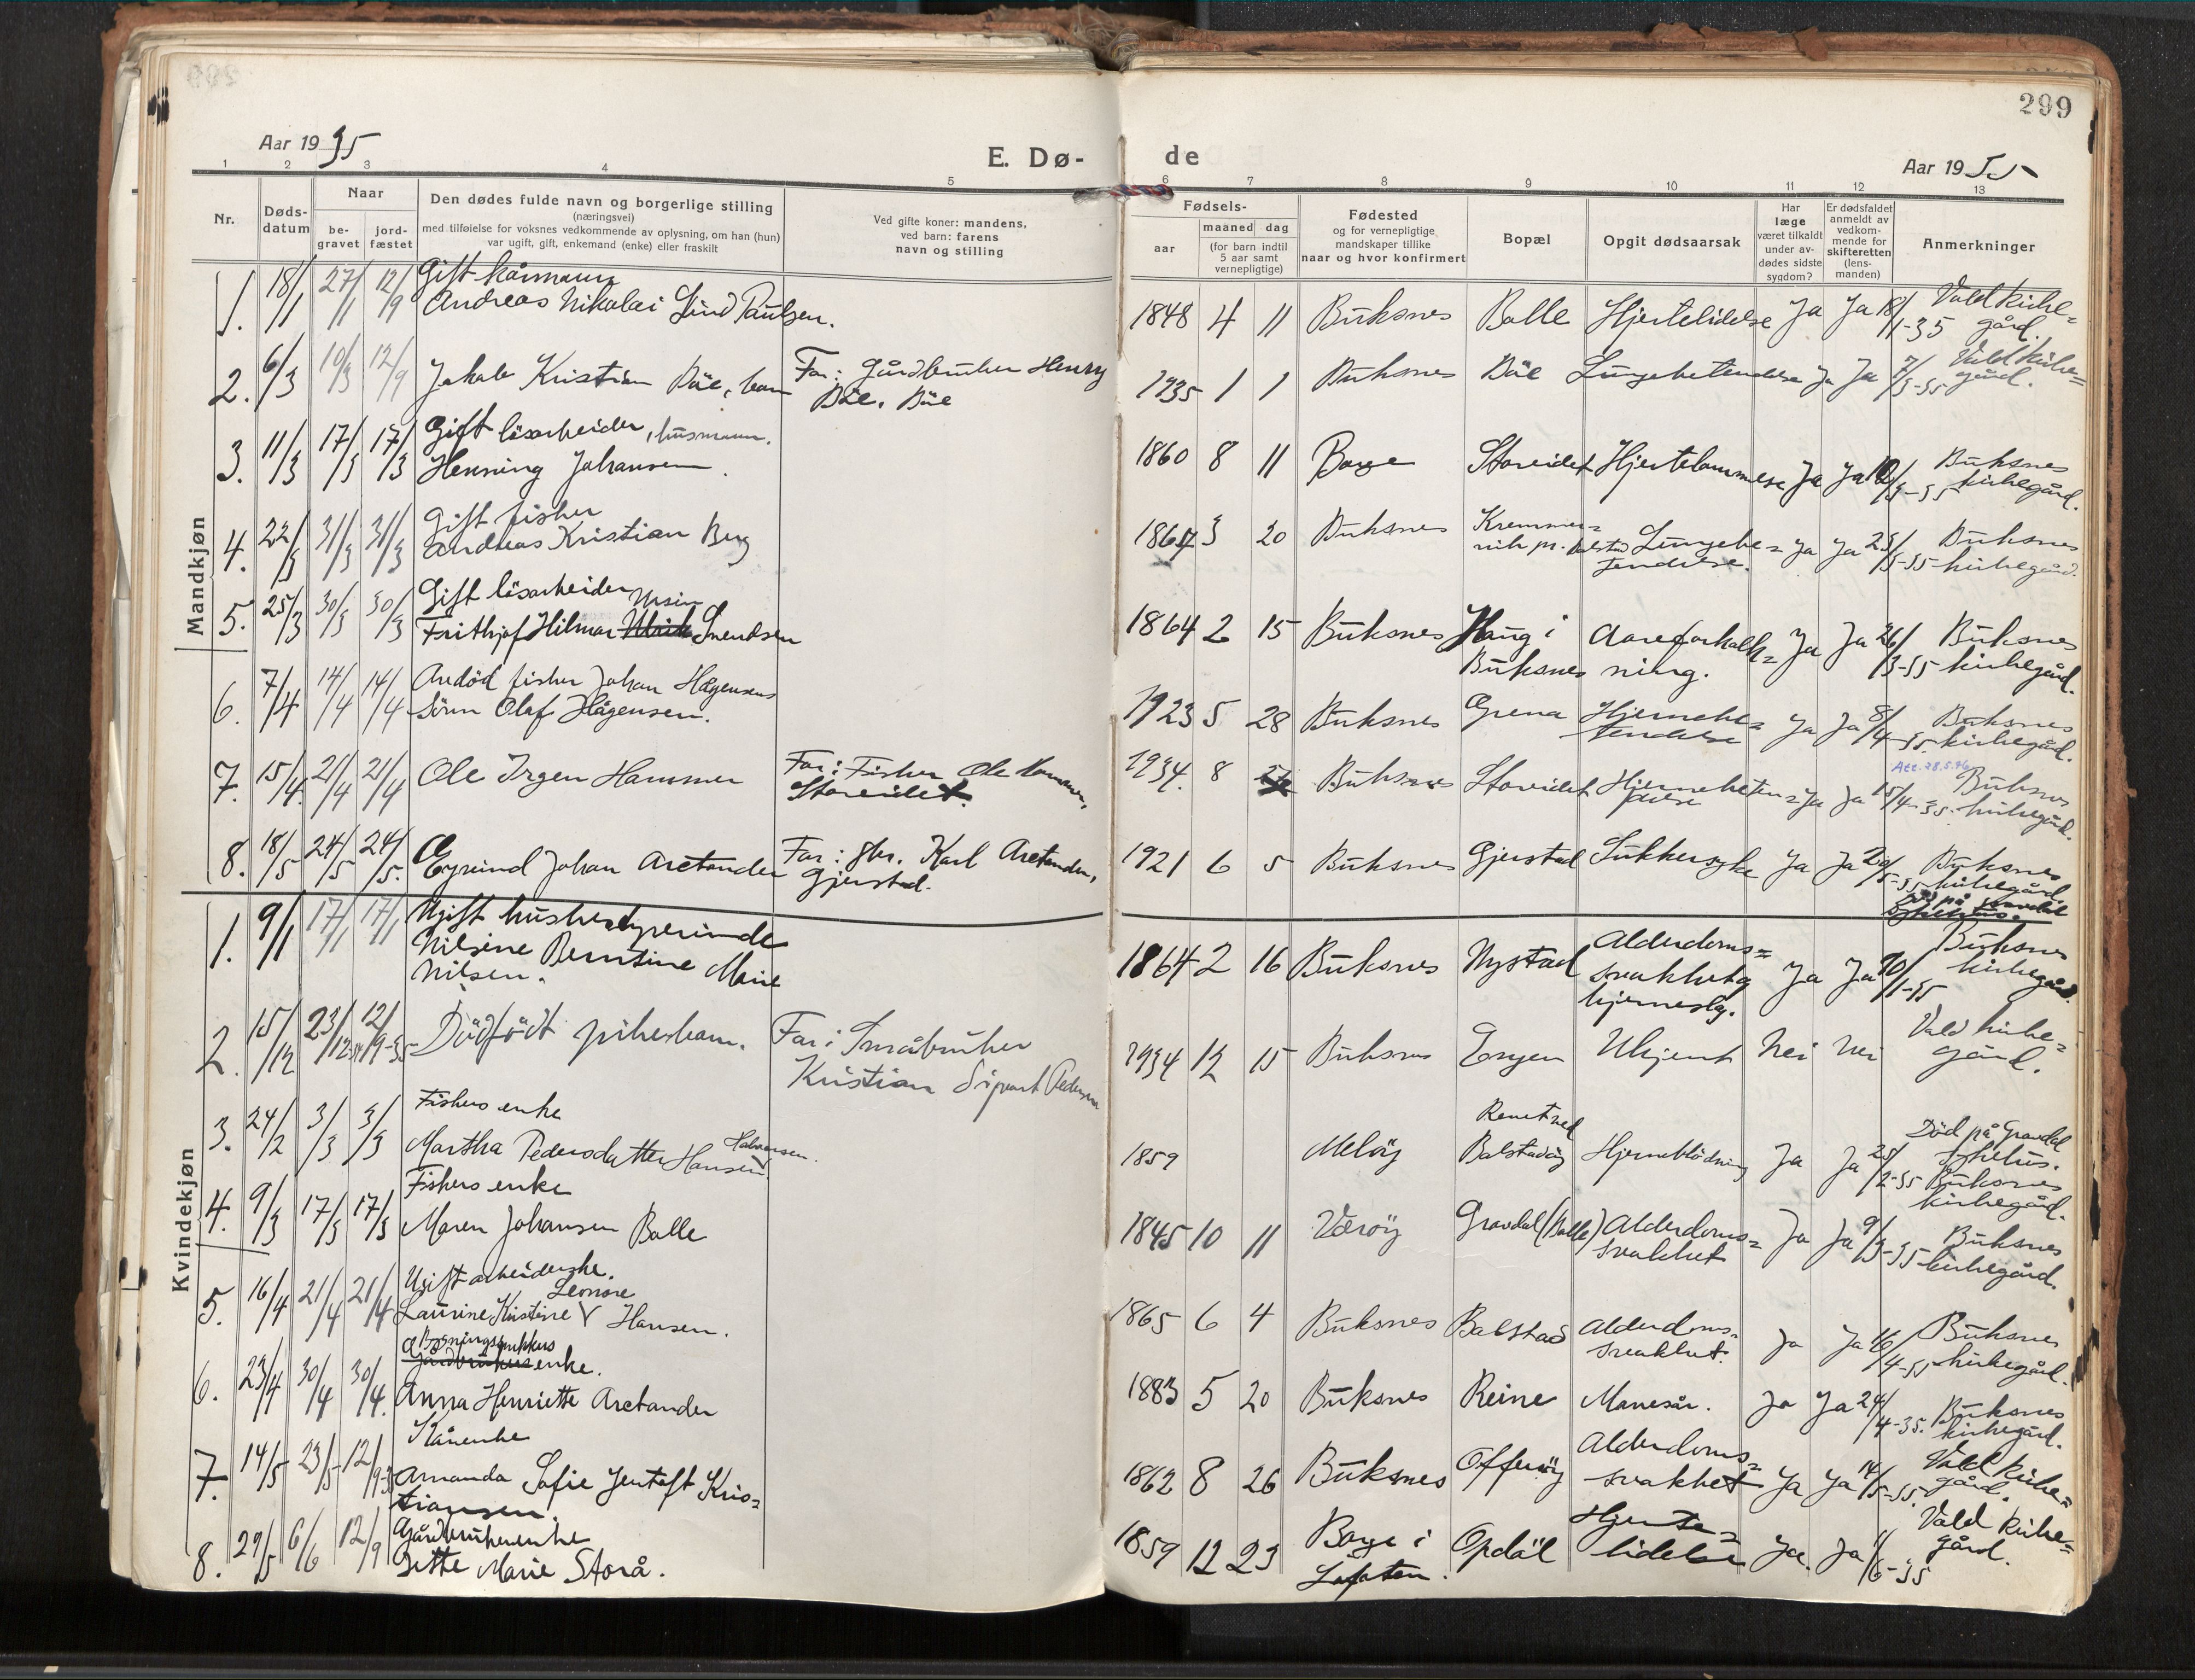 299
Aar 1935
E. Dø-
de
Aar 1935
1 2 3 4 5 6 7 8 9 10 11 12 13
Nr.
Døds-
datum
Naar
be-
gravet
jord-
fæstet
Den dødes fulde navn og borgerlige stilling
(næringsvei)
med tilføielse for voksnes vedkommende av oplysning, om han (hun)
var ugift, gift, enkemand (enke) eller fraskilt
Ved gifte koner: mandens,
ved barn: farens
navn og stilling
Fødsels-
aar
maaned dag
(for barn indtil
5 aar samt
vernepligtige)
Fødested
og for vernepligtige
mandskaper tillike
naar og hvor konfirmert
Bopæl
Opgit dødsaarsak
Har
læge
været tilkaldt
under av-
dødes sidste
sygdom?
Er dødsfaldet
anmeldt av
vedkom-
mende for
skifteretten
(lens-
manden)
Anmerkninger
Mandkjøn
1. 18/1 27/1 12/9 Gift kårmann
Andreas Nikolai Lind Paulsen.
1848 4 11 Buksnes Balle Hjertelidelse Ja Ja 18/1-35 Vald kirke=
gård.
2. 6/3 10/3 12/9 Jakob Kristian Böe, barn
Far: Gårdbruker Henry
Böe, Böe
1935 1 1 Buksnes Böe Lungebetendelse Ja Ja 7/3-35 Vald kirke=
gård.
3. 11/3 17/3 17/3 Gift lösarbeider, husmann.
Henning Johansen.
1860 8 11 Borge Storeidet Hjertelammelse Ja Ja /3-35 Buksnes
kirkegård.
4. 22/3 31/3 31/3 Gift fisker
Andreas Kristian Berg
3 20 Buksnes
Lungebe=
tendelse. Ja Ja 23/3-35 Buksnes
kirkegård.
5. 25/3 30/3 30/3 Gift lösarbeider
Frithjof Hilmar Svendsen
1864 2 15 Buksnes Haug i
Buksnes Aareforkalk=
ning. Ja Ja 26/3-35 Buksnes
kirkegård.
6. 7/4 14/4 14/4 Avdöd fisker Johan Hågensens
sönn Olaf Hågensen.
1923 5 28 Buksnes Grena Hjernebe=
tendelse Ja Ja 8/4-35 Buksnes
kirkegård.
7. 15/4 21/4 21/4 Ole Irgen Hammer
Far: Fisker Ole Hammer,
Storeidet.
1934. 8 Buksnes Storeidet Hjernebeten=
delse Ja Ja 15/4-35 Buksnes
kirkegård.
Att. 28.5.76
8. 18/5 24/5 24/5. Eyvind Johan Arctander
Far: gbr. Karl Arctander,
Gjerstad.
1921 6 5 Buksnes Gjerstad Sukkersyke Ja Ja 20/5-35 Buksnes
kirkegård
Död på Gravdal
sykehus.
Kvindekjøn
1. 9/1 17/1 17/1 Ugift husbestyrerinde
Nilsine Berntine Marie
Nilsen.
1864 2 16 Buksnes Nystad Alderdoms=
svakhet og
hjerneslag. Ja Ja 10/1-35 Buksnes
kirkegård.
2. 15/12 23/12-34 12/9-35 Dödfödt pikebarn.
Far: Småbruker
Kristian Sigvart Pedersen
1934 12 15 Buksnes Engen Ukjent Nei Nei Vald kirke=
gård.
3. 24/2 3/3 3/3 Fiskers enke
Martha Pedersdatter Hansen Halvorsen.
1859 Melöy Balstadöy Hjerneblödning Ja Ja 25/2-35 Död på Gravdal
sykehus.
Buksnes
kirkegård.
4. 9/3 17/3 17/3 Fiskers enke
Maren Johansen Balle
1845 10 11 Væröy Gravdal (Balle) Alderdoms=
svakhet Ja Ja 9/3-35 Buksnes
kirkegård.
5. 16/4 21/4 21/4 Ugift arbeiderske.
Laurine Kristine V Leonore Hansen.
1865 6 4 Buksnes Balstad Alderdoms=
svakhet. Ja Ja 16/4-35 Buksnes
kirkegård.
6. 23/4 30/4 30/4. Gårdbrukers enke.
Anna Henriette Arctander
1883 5 20 Buksnes Reine Mavesår. Ja Ja 24/4-35. Buksnes
kirkegård.
7. 14/5 23/5 12/9-35 Kårenke
Amanda Sofie Jentoft Kris=
tiansen.
1862 8 26 Buksnes Offersöy Alderdoms=
svakhet Ja Ja 14/5-35. Vald kirke=
gård.
8. 29/5 6/6 12/9 Gårdbrukerenke
Gitte Marie Storå.
1859 12 23 Borge i
Lofoten. Opdöl Hjerte=
lidelse Ja. Ja 1/6-35 Vald kirke=
gård.